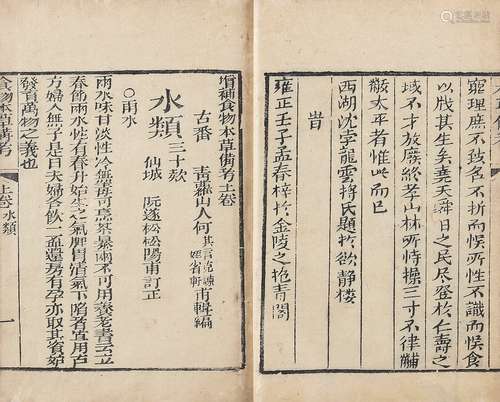 窮理庶不致折而悞所性不識而悞食
以戕其生矣堯天舜日之民尽登於仁壽之
域不才放廢終孝山林所恃操三寸不律黼
黻太平者惟此而已
西湖沈李龍雲將氏題於欲靜樓
旹
雍正壬子孟春梓於金陵之抱青閣
增補食物本草備考上卷
古番 青蘿山人何其言克諫省軒甫輯編
水類 三十款 仙城 阮遂松松陽甫訂正
○雨水
雨水味甘淡性冷無毒可烹茶暴雨不可用養老書云立
春節雨水性有春升始生之氣脾胃清氣下陷者宜用古
方婦人無子是日夫婦各飲一盃還房有孕亦取其資始
發育萬物之義也
食物本草備考 上卷水類 一